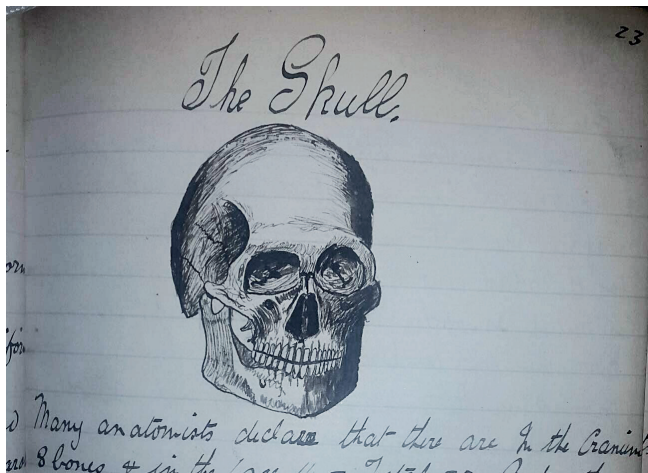 23
The Skull.
Many anatomists declare that there are In the Cranium
8 bones & in the